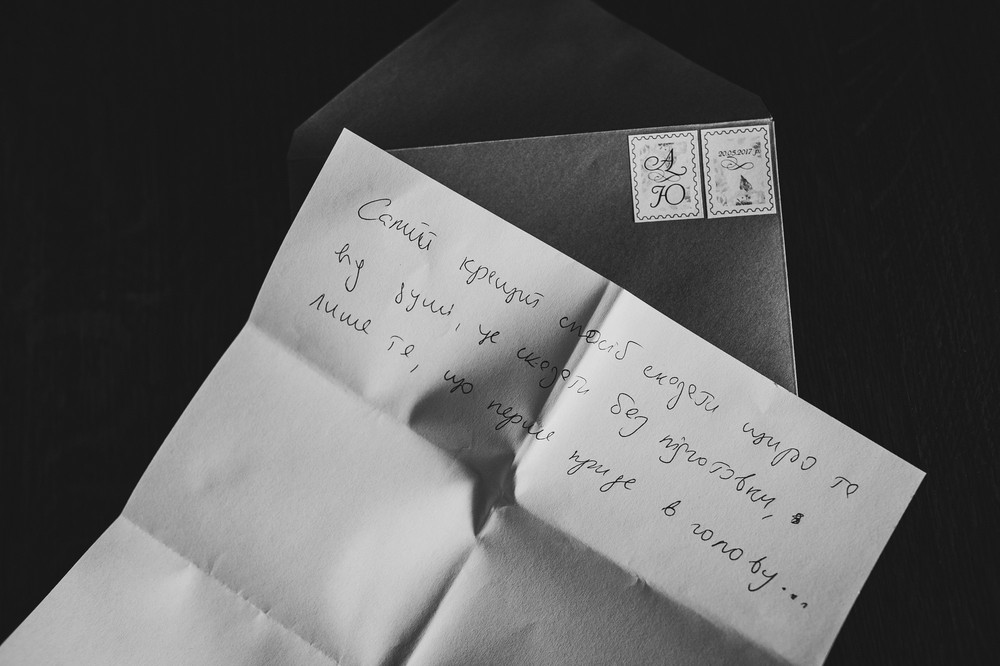 А
Ю
20.05.2017
Самий кращий спосіб сказати щиро та
від душі, це сказати без підготовки,
лише те, що перше приде в голову...